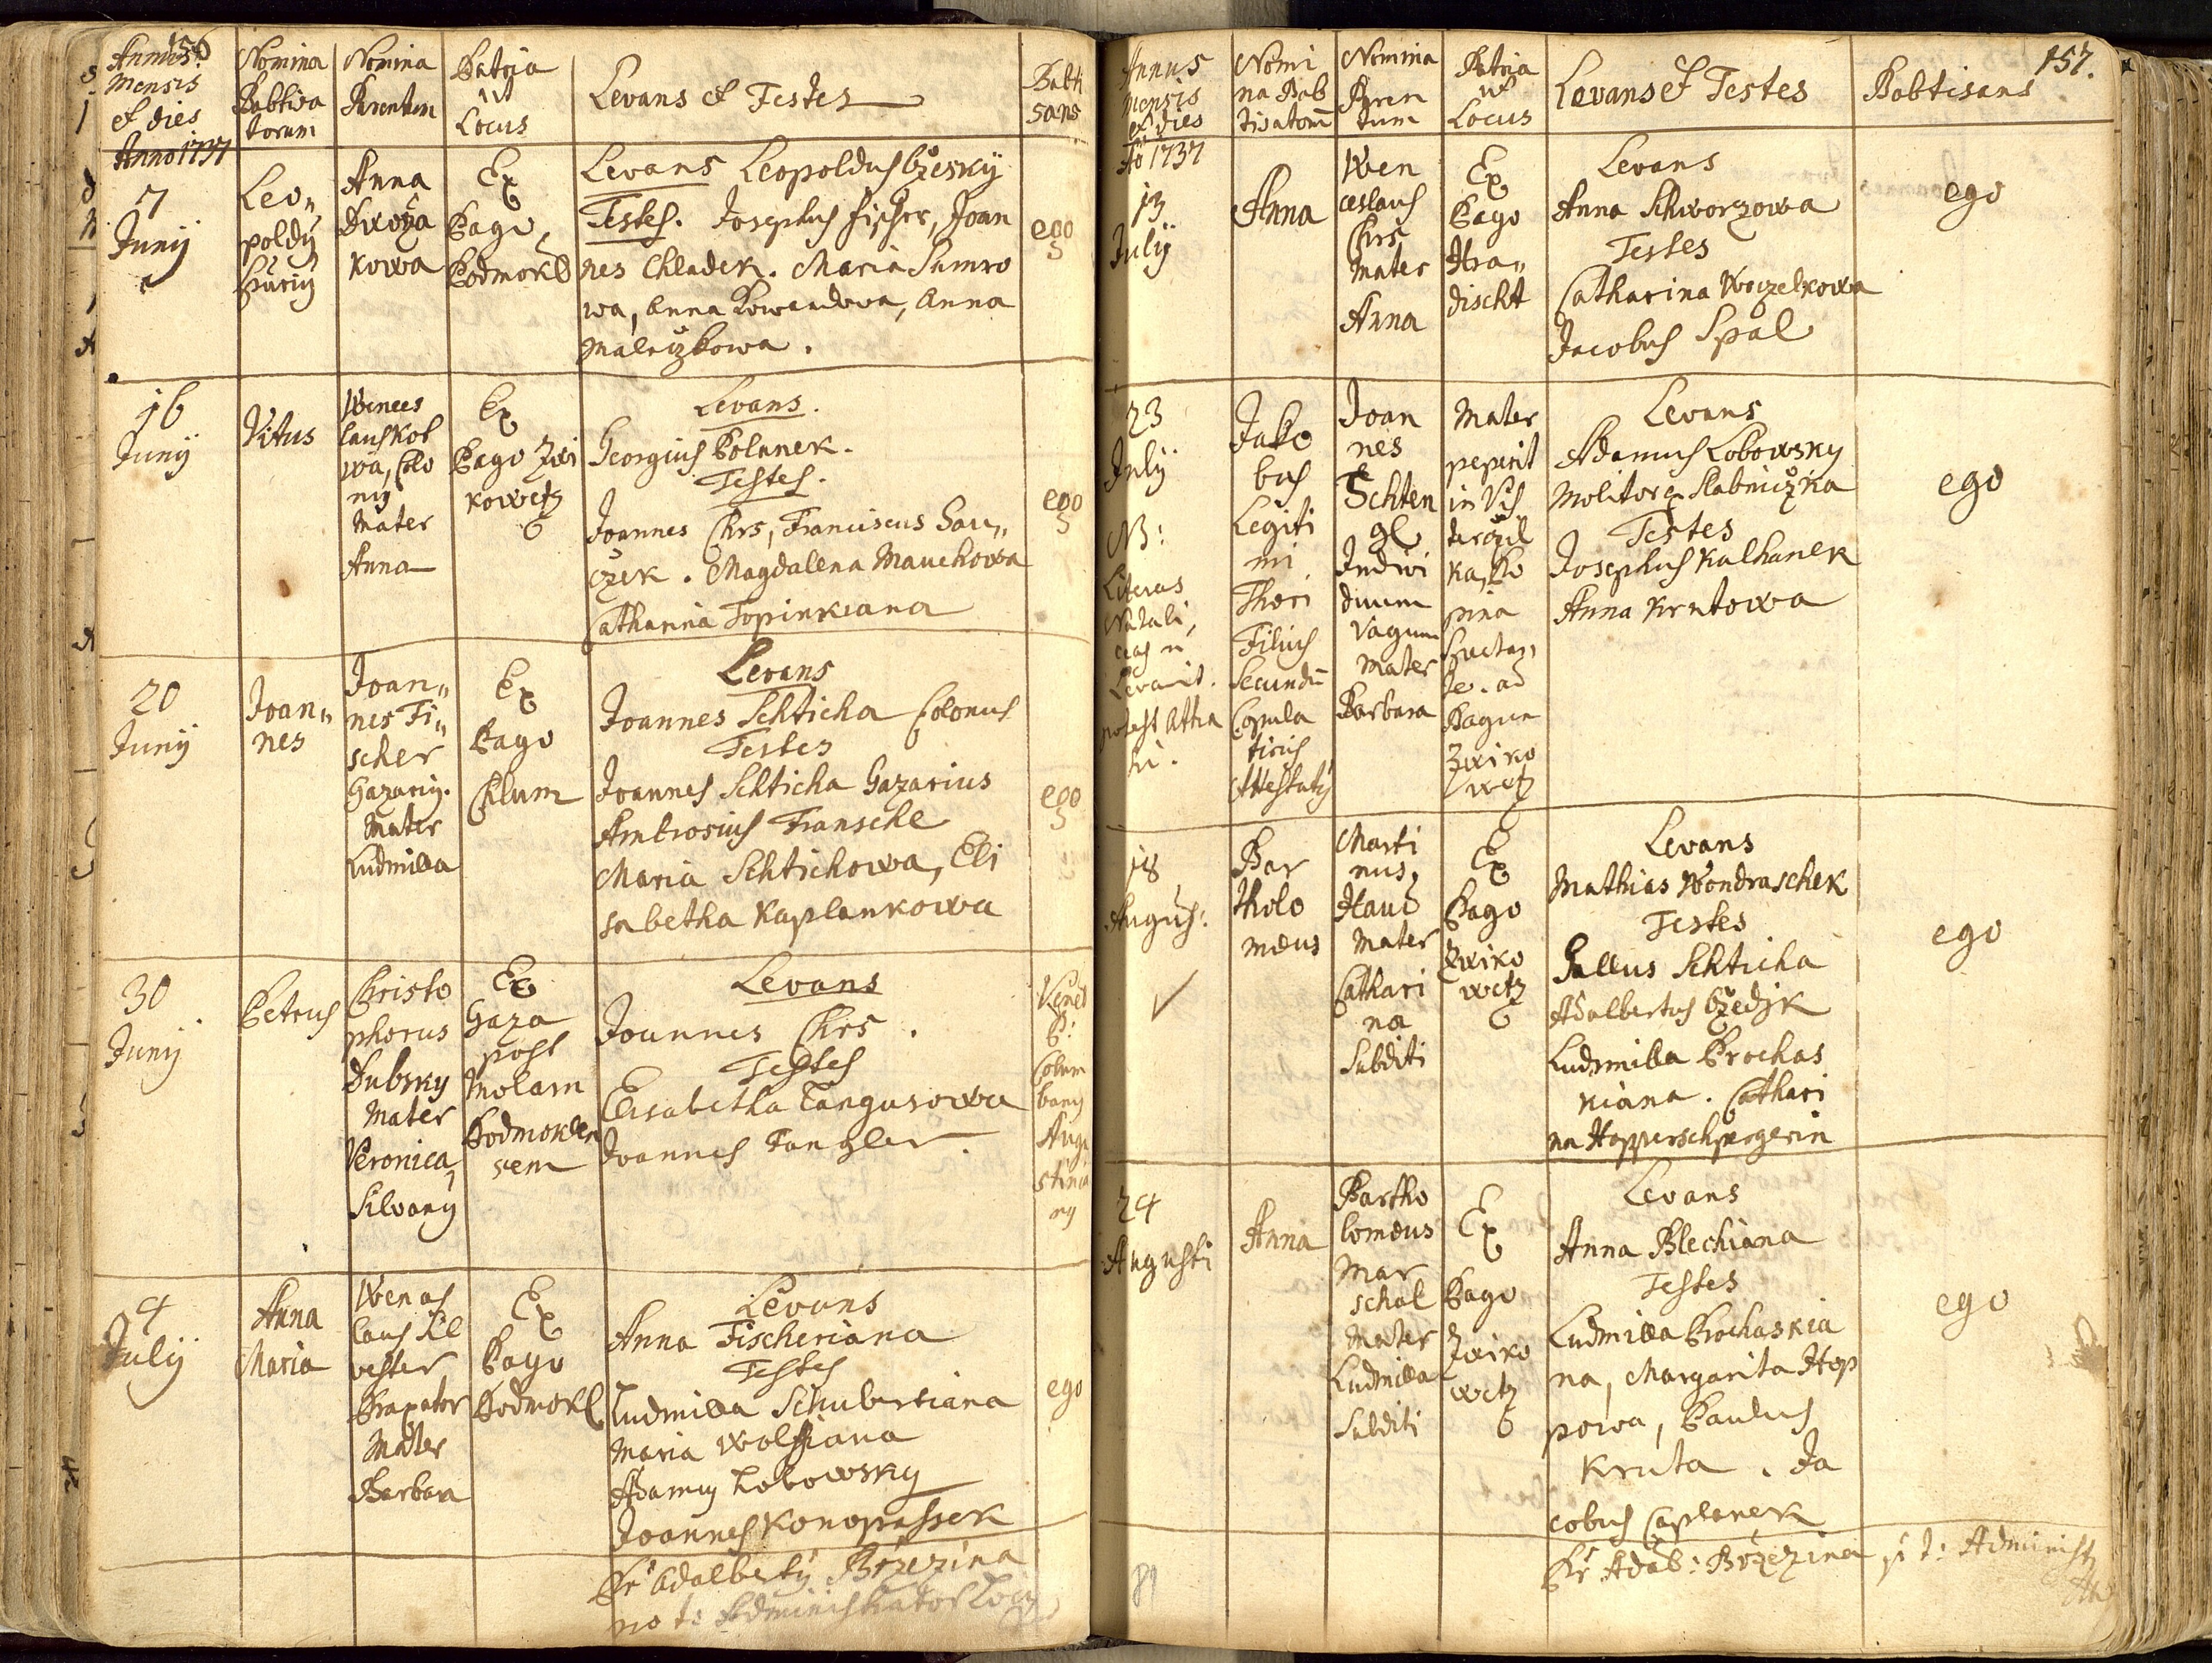 156
Annus
Mensis
et dies
Nomina
Babtisa
torum
Nomina
Parentum
Patria
ut
Locus
Levans et Testes
Babti
sans
Anno 1737
7
Junij
Leo„
poldy
Anna
kowa
Ex
Pago
Podmokl
Levans Leopoldus
Testes. Josephus Fischer, Joan
nes Chladek. Maria Sumro
wa, Anna Kowandowa, Anna
ego
16
Junij
Vitus
Wences
laus Kot
wa, Colo
ny
Mater
Anna
Ex
Pago Zwi
kowetz
Levans.
Georgius Polanek.
Testes.
Joannes Chrs, Franciscus Sau„
czek. Magdalena Mauchowa
Catharina Topinkiana
ego
20
Junij
Joan„
nes
Joan„
nes Fi„
scher
Gazariy.
Mater
Ludmilla
Ex
Pago
Chlum
Levans
Joannes Schticha Colonus
Testes
Joannes Schticha Gazarius
Ambrosius Transche
Maria Schtichowa, Eli
sabetha Kaplankowa
ego
30
Junij
Petrus
Christo
phorus
Dubsky
Mater
Veronica,
Silvany
Ex
Gaza
post
Molam
Podmoklen
sem
Levans
Joannes Chrs.
Testes
Elisabetha Tangurowa
Joannes Tangler.
Vened
P:
Colum
bany
Augu
stinia
ny
4
Julij
Anna
Maria
Wences
laus Sil
vester
Braxator
Mater
Barbara
Ex
Pago
Podmokl
Levans
Anna Fischeriana
Testes
Ludmilla Schubertiana
Maria Wolfiana
Adamus Lobowsky
Joannes Konopassek
ego
Pr Adalberty Brzezina
Administrator Loci
157.
Annus
Mensis
et dies
Nomi
na Bab
tisatorum
Nomina
Paren
tum
Patria
ut
Locus
Levans et Testes
Babtisans
Ao 1737
13
Julij
Anna
Wen
ceslaus
Chrs
Mater
Anna
Ex
Pago
Hra„
discht
Levans
Anna Schworzowa
Testes
Catharina Woczelkowa
Jacobus Spal
ego
23
Julij
NB:
Literas
Natali,
Levavit.
Jako
bus
Legiti
mi
Thori
Filius
Secundu
Copula
Joan
nes
Schten
gl
Indivi
duum
Vagum
Mater
Barbara
Mater
peperit
in
ad
Pagum
Zwiko
wetz
Levans
Adamus Lobowsky
Molitor
Testes
Josephus Kalhanek
Anna Krutowa
ego
18
Augus:
Bar
tholo
mæus
Marti
nus
Haud
Mater
Cathari
na
Subditi
Ex
Pago
Zwiko
wetz
Levans
Mathias Wondraschek
Testes
Gallus Schticha
Adalbertus
Ludmilla Prochas
kiana. Cathari
na Hopperschpergerin
ego
24
Augusti
Anna
Bartho
lomæus
Mar
schal
Mater
Ludmilla
Subditi
Ex
Pago
Zwiko
wetz
Levans
Anna Blechiana
Testes
Ludmilla Prochaskia
na, Margarita Hop
powa, Paulus
Kruta. Ja
cobus Caplanek
ego
81
Pr Adalb: Brzezina p: t: Administ